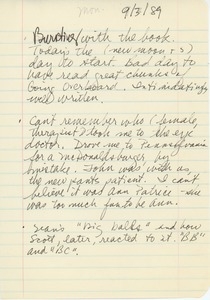 9/3/89
• Burdick(?) with the book.
Today's the (new moon + 3)
day to start. Bad day to
have read great chunks of
Going Overboard. Intimidatingly
well written.
• Can't remember who (female,
therapist) took me to the eye
doctor. Drove me to Pennsylvania
for a McDonaldsburger, by
mistake. John was with us,
the new pants patient. I can't
believe it was Ann Patrice - she
was too much fun to be Ann.
• Sean's "Big balls" and how
Scott, later, reacted to it. "BB"
and "BC".